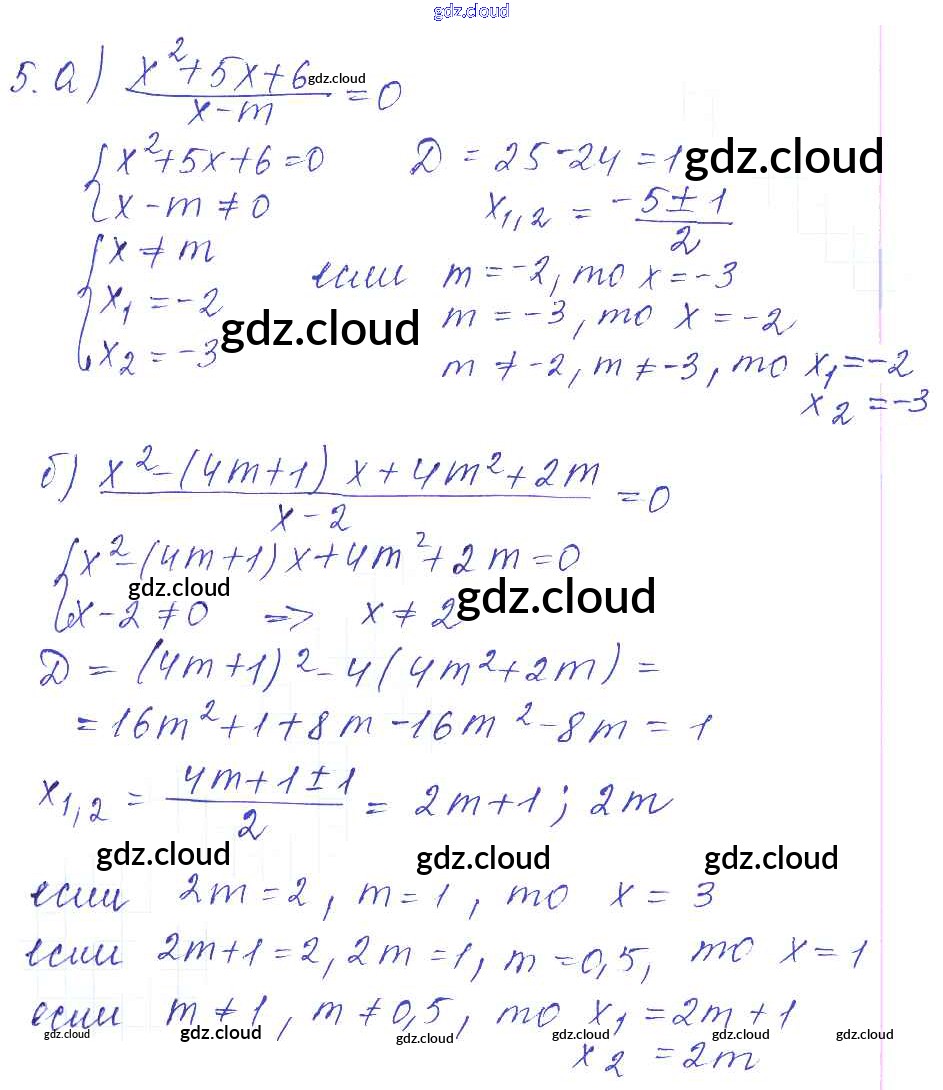 gdz.cloud
5. а) (x² + 5x + 6)/(x - m) = 0
gdz.cloud
{ x² + 5x + 6 = 0   D = 25 - 24 = 1
gdz.cloud
x - m ≠ 0   x₁,₂ = (-5 ± 1)/2
{ x ≠ m   если m = -2, то x = -3
x₁ = -2   m = -3, то x = -2
gdz.cloud
x₂ = -3   m ≠ -2, m ≠ -3, то x₁ = -2
x₂ = -3
б) (x² - (4m+1) x + 4m² + 2m)/(x - 2) = 0
{ x² - (4m+1) x + 4m² + 2m = 0
gdz.cloud gdz.cloud
x - 2 ≠ 0 => x ≠ 2
D = (4m+1)² - 4(4m² + 2m) =
= 16m² + 1 + 8m - 16m² - 8m = 1
x₁,₂ = (4m + 1 ± 1)/2 = 2m + 1; 2m
gdz.cloud gdz.cloud gdz.cloud
если 2m = 2, m = 1, то x = 3
если 2m + 1 = 2, 2m = 1, m = 0,5, то x = 1
если m ≠ 1, m ≠ 0,5, то x₁ = 2m + 1
gdz.cloud gdz.cloud gdz.cloud gdz.cloud gdz.cloud gdz.cloud
x₂ = 2m